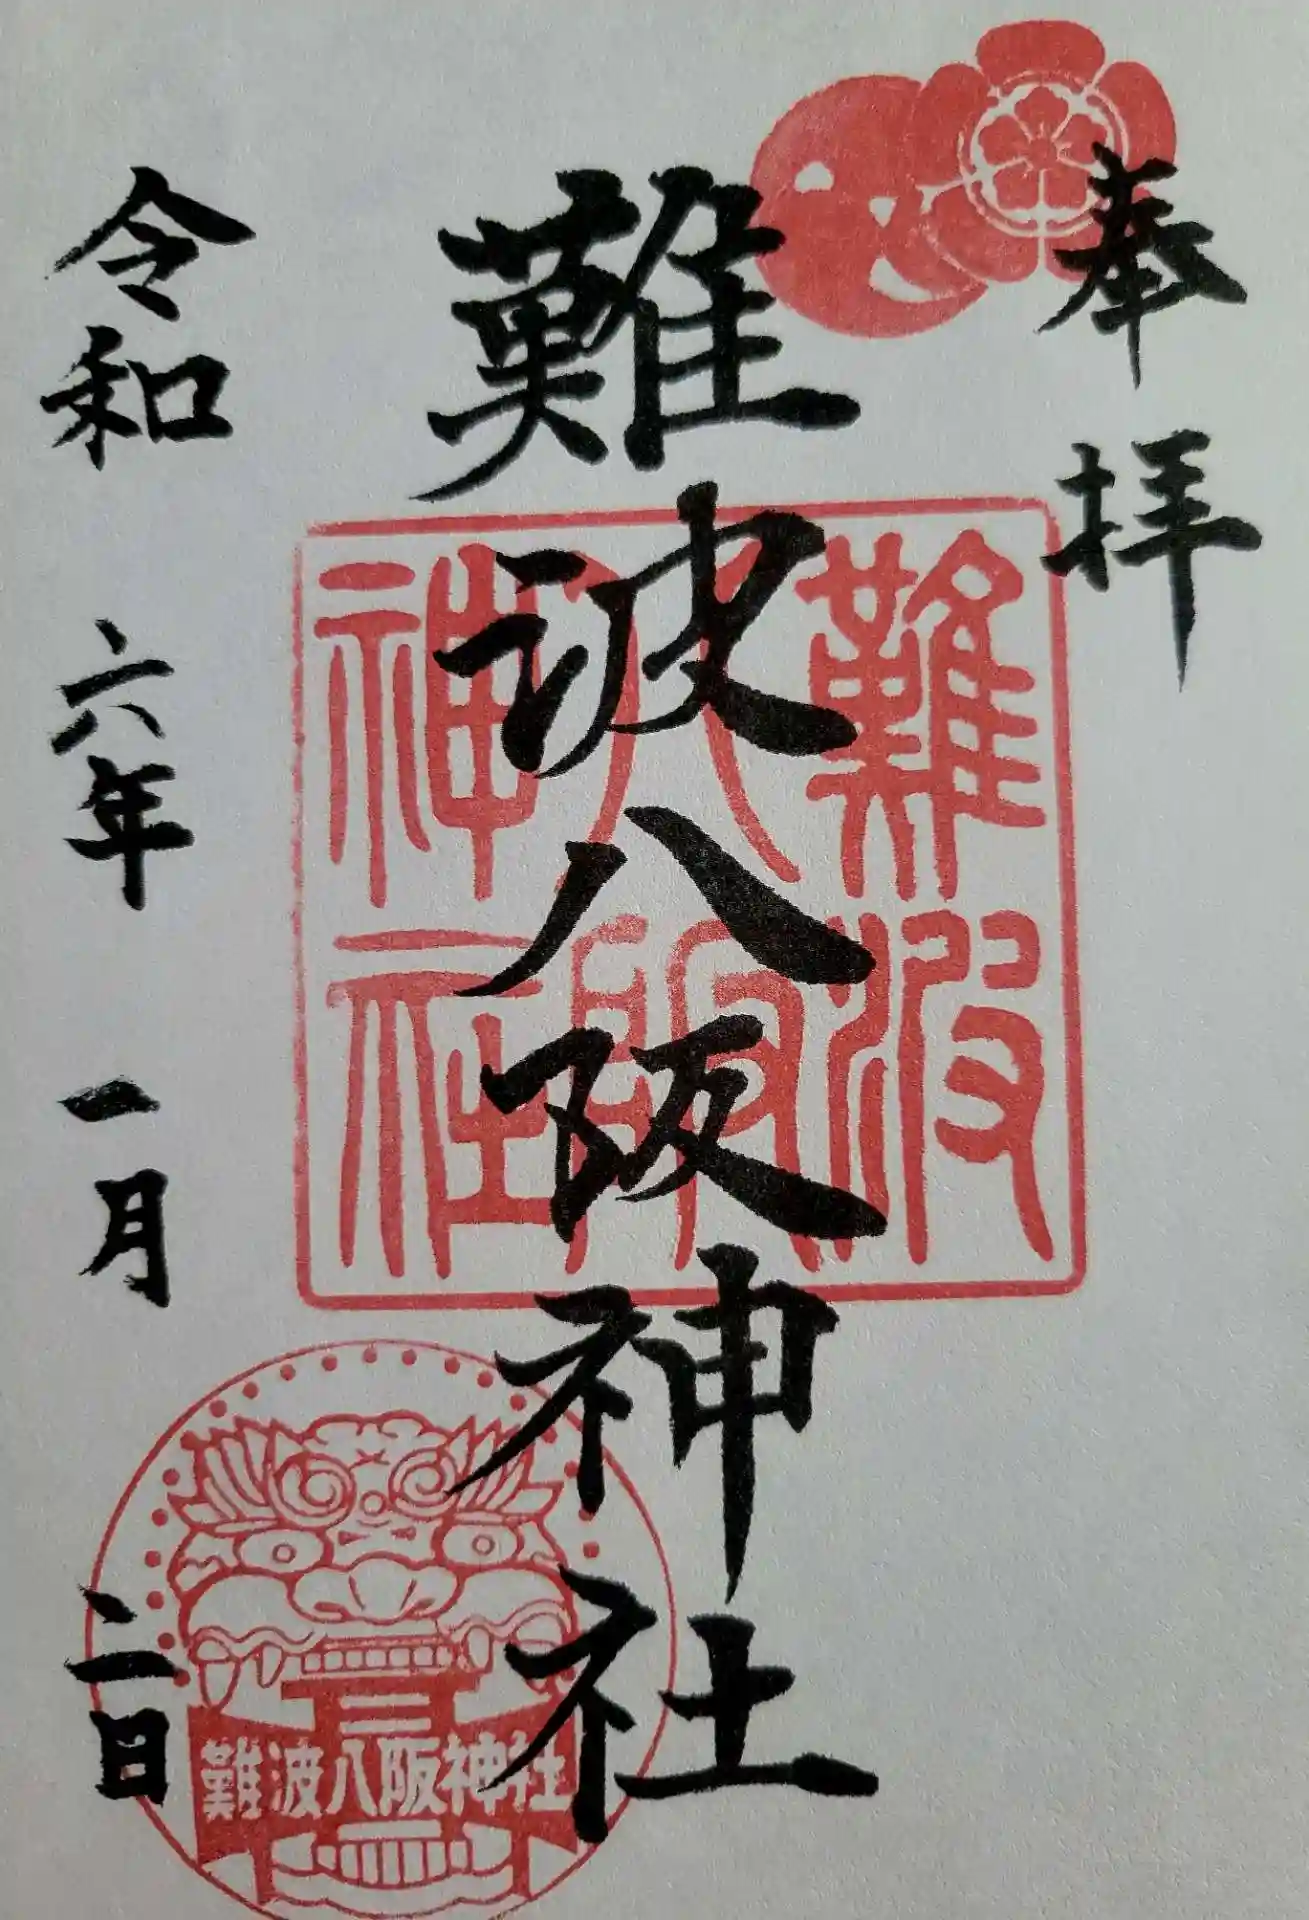 奉拝
難波八阪神社
難波
八阪
神社
令和六年一月二日
難波八阪神社